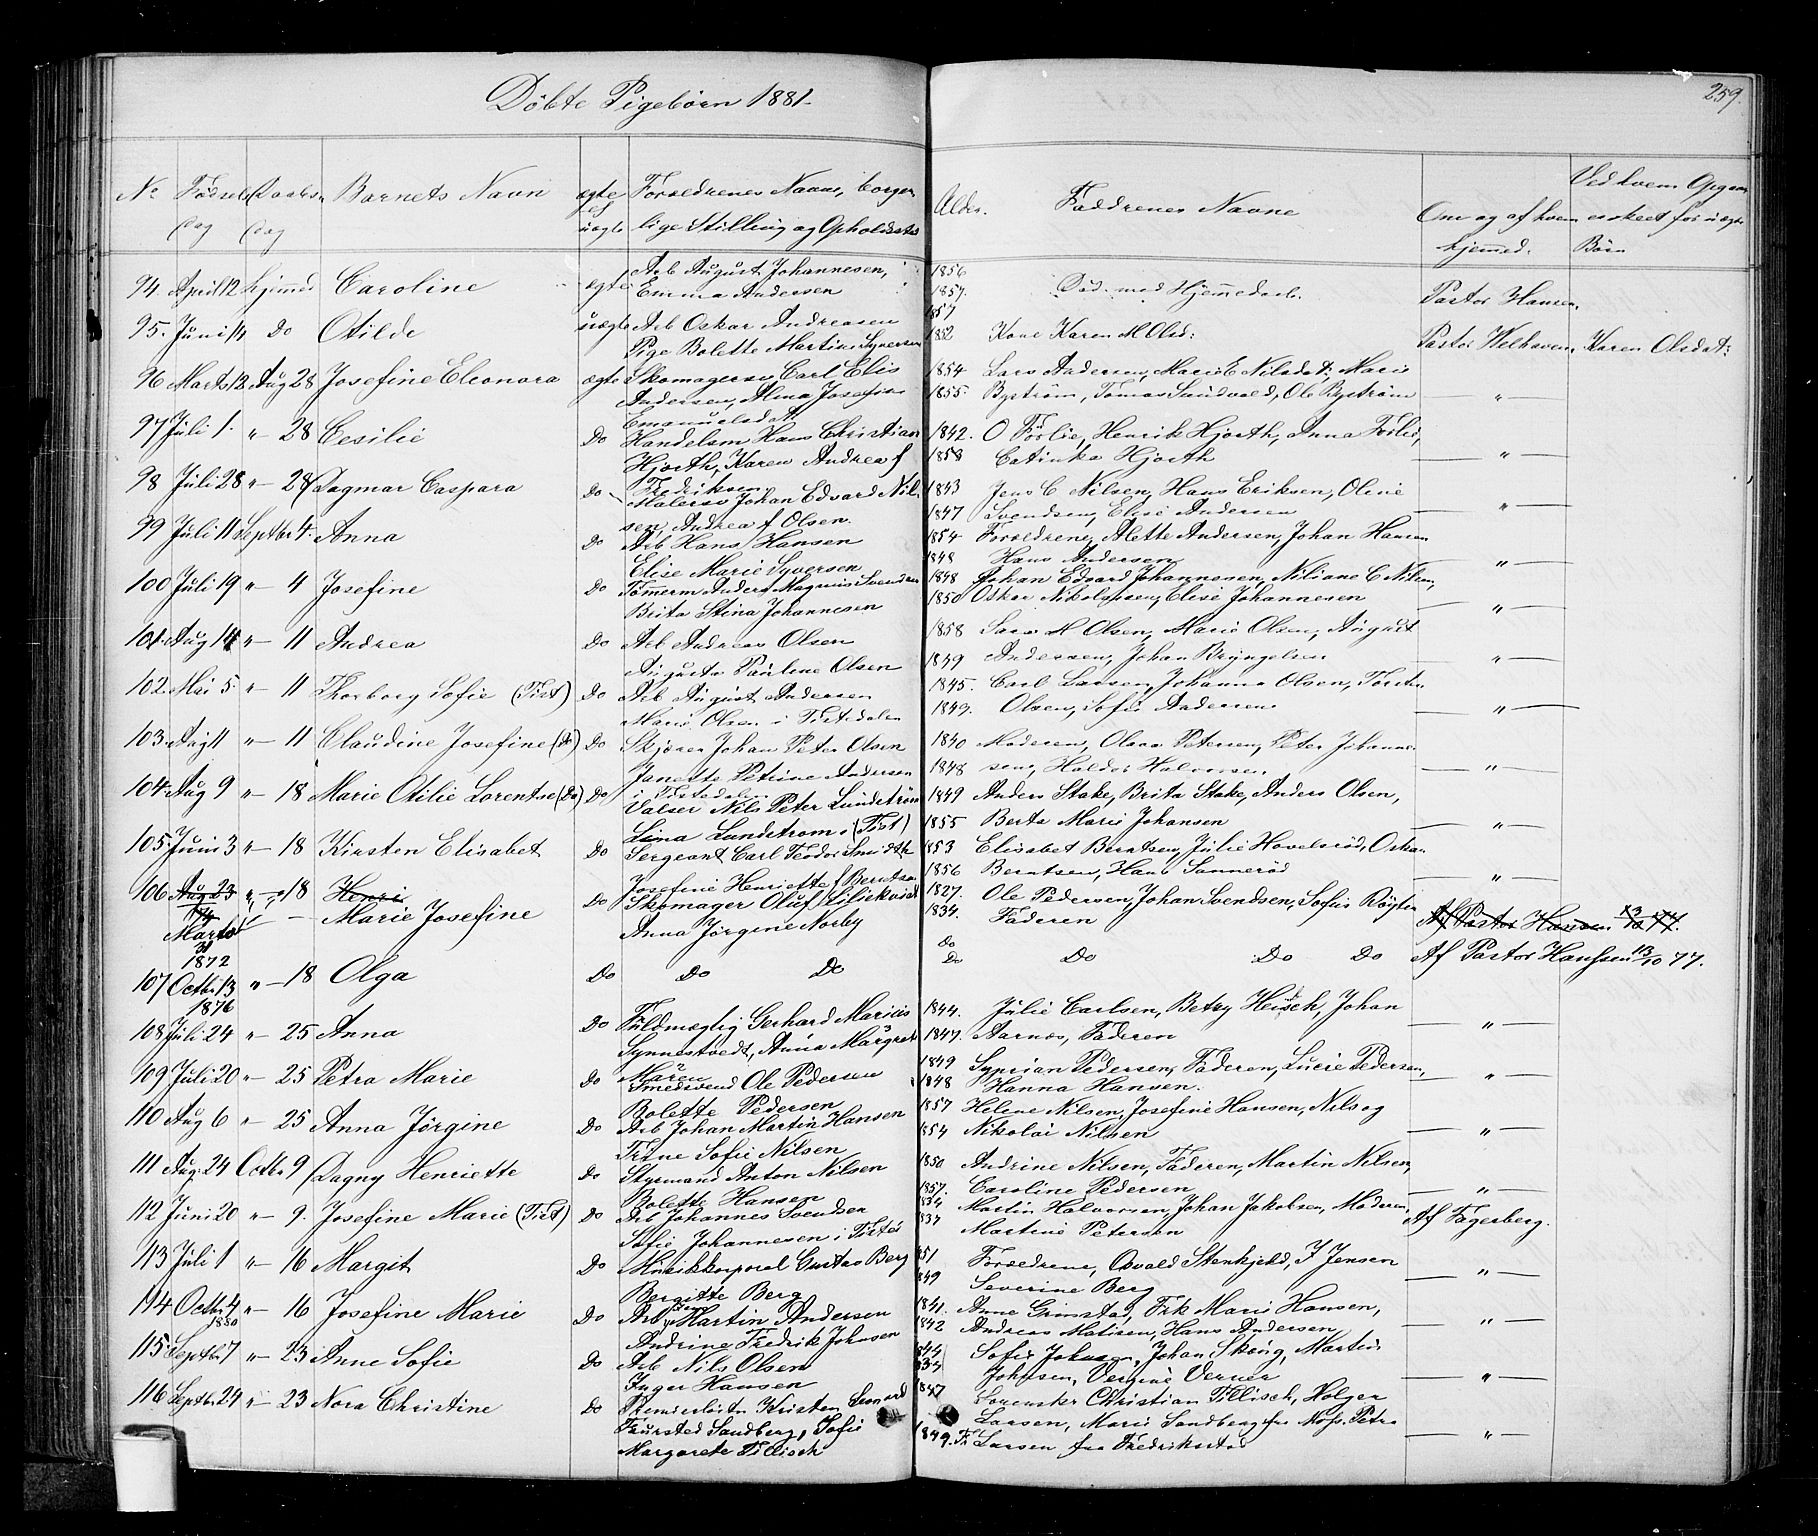 Döbte Pigebörn 1881.
259.
No Födsels Dag Daabs Dag Barnets Navn ægte el uægte Forældrenes Navne, borgerlige Stilling og Opholdssted Alder. Faddrenes Navne Om og af hvem hjemmed. Ved hvem Opgaven er skeet for uægte Börn
94. April 12 hjemmed Caroline ægte Arb August Johannesen, 1856 Död med Hjemmedaab. Pastor Hansen.
Emma Andersen 1857.
95. Juni 14 Do Otilde uægte Arb Oskar Andreasen 1857 Kone Karen M Olsd: Pastor Welhaven. Karen Olsdat:
Pige Bolette Martine Syversen 1852
96 Marts 12 Aug 28 Josefine Eleonora ægte Skomagersv Carl Elis 1854 Lars Andersen, Marie E Nilsdat, Marie
Andersen, Alma Josefin 1855. Byström, Tomas Sundvald, Ole Byström — " —
Emanuelsdat.
97 Juli 1. " 28 Cesilie Do Handelsm Hans Christian 1842. O Förlie, Henrik Hjorth, Anna Förlie,
Hjorth, Karen Andrea f 1858 Catinka Hjorth — " —
Fredriksen
98 Juli 28 " 28 Dagmar Caspara Do Malersv Johan Edvard Nil- 1843 Jens C Nilsen, Hans Eriksen, Oline
sen, Andrea f Olsen. 1847 Svendsen, Elise Andersen — " —
99 Juli 11 Septbr 4. Anna Do Arb Hans Hansen 1854 Forældrene, Alette Andersen, Johan Hansen
Elise Marie Syversen 1848 Hans Andersen — " —
100 Juli 19 " 4 Josefine Do Tömerm Anders Magnus Svendsen 1848 Johan Edvard Johannesen, Niliane C Nilsen,
Brita Stina Johannesen 1850 Oskar Nikolaysen, Elise Johannesen — " —
101. Aug 14 " 11 Andrea Do Arb Andreas Olsen 1858 Lars M Olsen, Marie Olsen, August
Augusta Pauline Olsen 1849 Andersen, Johan Bryngelsen — " —
102. Mai 5. " 11 Thorborg Sofie (Tist) Do Arb August Andersen 1845. Carl Larsen, Johanna Olsen, Torsten
Marie Olsen i Tistedalen 1849. Olsen, Sofie Andersen — " —
103. Aug 11 " 11 Claudine Josefine (Do) Do Skjörer Johan Peter Olsen 1840 Moderen, Olava Petersen, Peter Johanne-
Janette Petrine Andersen 1848 sen, Haldor Halvorsen — " —
i Tistedalen
104. Aug 9 " 18 Marie Otilie Lorentse (Do) Do Valser Nils Peter Lundström 1849 Anders Stake, Brita Stake, Anders Olsen,
Lina Lundstrom i (Tist) 1855 Berta Marie Johansen — " —
105. Juni 3 " 18 Kirsten Elisabet Do Sergeant Carl Teodor Smidth 1853 Elisabet Berntsen, Julie Hovelsröd, Oskar
Josefine Henriette f Berntsen 1856 Berntsen, Hans Sannerød — " —
106 Aug 23 " 18 Henri Do Skomager Oluf Liliekvist 1827. Ole Pedersen, Johan Svendsen, Sofus Röyter
Marts 31 1872 Marie Josefine Anna Jörgine Norby 1834. Faderen Af Pastor Hansen 13/10 77.
107 Octbr 13 1876 " 18 Olga Do Do Do Do Do Do Do Do Af Pastor Hansen 13/10 77.
108 Juli 24 " 25 Anna Do Fuldmægtig Gerhard Marius 1844. Julie Carlsen, Betzy Heisch, Johan
Synnestvedt, Anna Margret 1847. Aarnæs, Faderen — " —
Mören
109 Juli 20 " 25 Petra Marie Do Smedsvend Ole Pedersen 1849 Syprian Pedersen, Faderen, Lucie Pedersen,
Bolette Pedersen 1848 Hanna Hansen. — " —
110 Aug 6 " 25 Anna Jörgine Do Arb Johan Martin Hansen 1857 Helene Nilsen, Josefine Hansen, Nils og
Trine Sofie Nilsen 1854 Nikolai Nilsen — " —
111 Aug. 24 Octbr 9 Dagny Henriette Do Styrmand Anton Nilsen 1850 Andrine Nilsen, Faderen, Martin Nilsen,
Bolette Hansen 1857. Caroline Pedersen — " —
112 Juni 20 " 9. Josefine Marie (Tist) Do Arb Johannes Svendsen 834 Martin Halvorsen, Johan Jakobsen, Moderen, Af Fagerberg.
Sofie Johannesen i Tisteds 837 Martine Petersen
113 Juli 1 " 16 Margit Do Musikkorporal Gustav Berg 851 Forældrene, Osvald Stenkjeld, I Jensen
Bergitte Berg 849 Severine Berg — " —
114 Octbr 4 1880 " 16 Josefine Marie Do Arb Martin Andersen 1841. Anne Grimstad, Frk Marie Hansen,
Andrine Fredrik Johnsen 1842 Andreas Matisen, Hans Andersen — " —
115. Septbr 7 " 23 Anne Sofie Do Arb Nils Olsen 844 Sofie Johnsen, Johan Skoug, Martin
Inger Hansen 834 Johnsen, Vergine Verner — " —
116 Septbr 24 " 23 Nora Christine Do Premierløitn Kristen Leonard 1847 Lorenske Christian Tillisch, Holger
Frursted Sandberg, Sofie Larsen, Marie Sandberg fra Moss, Petra
Margarete Tillisch 1849. Fr Larsen fra Fredriksstad — " —